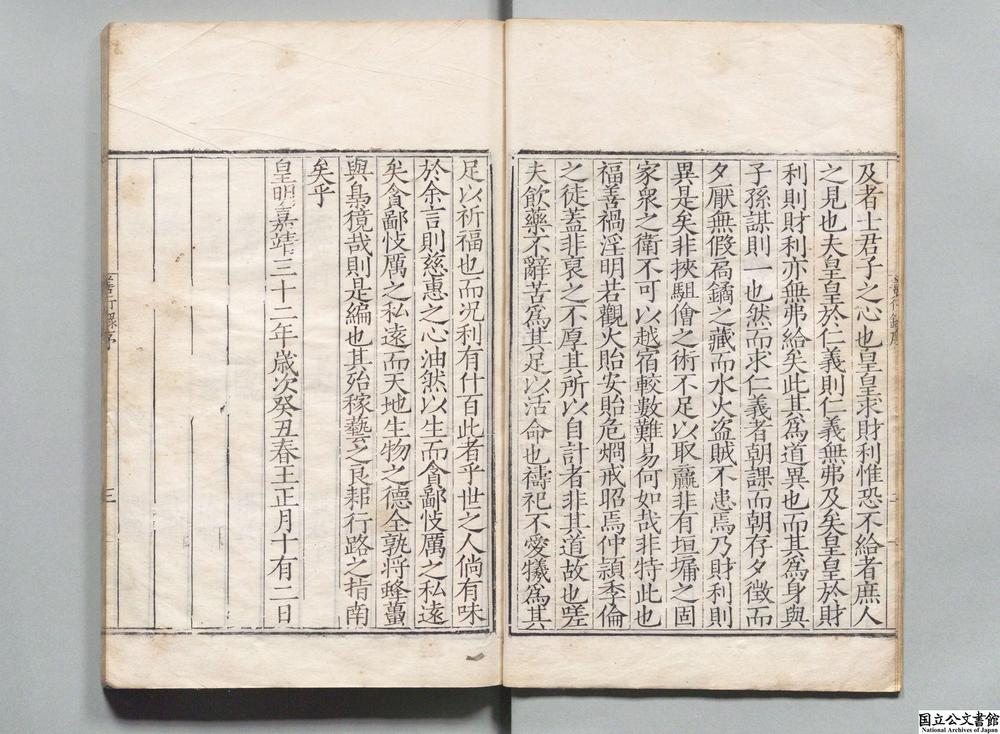 及者士君子之心也皇皇求財利惟恐不給者庶人
之見也夫皇皇於仁義則仁義無弗及矣皇皇於財
利則財利亦無弗給矣此其爲道異也而其爲身與
子孫謀則一也然而求仁義者朝課而朝存夕徵而
夕厭無假扃鐍之藏而水火盗賊不患焉乃財利則
異是矣非挾駔儈之術不足以取贏非有垣墉之固
家衆之衛不可以越宿較數難易何如哉非特此也
福善禍淫明若觀火貽安貽危烱戒昭焉仲頴季倫
之徒蓋非哀之不厚其所以自計者非其道故也嗟
夫飲藥不辭苦爲其足以活命也禱祀不愛犧爲其
足以祈福也而况利有什百此者乎世之人倘有味
於余言則慈惠之心油然以生而貪鄙忮厲之私遠
矣貪鄙忮厲之私遠而天地生物之德全孰将蜂蠆
與梟獍哉則是編也其殆稼藝之良耜行路之指南
矣乎
皇明嘉靖三十二年歳次癸丑春王正月十有二日
三
国立公文書館
National Archives of Japan